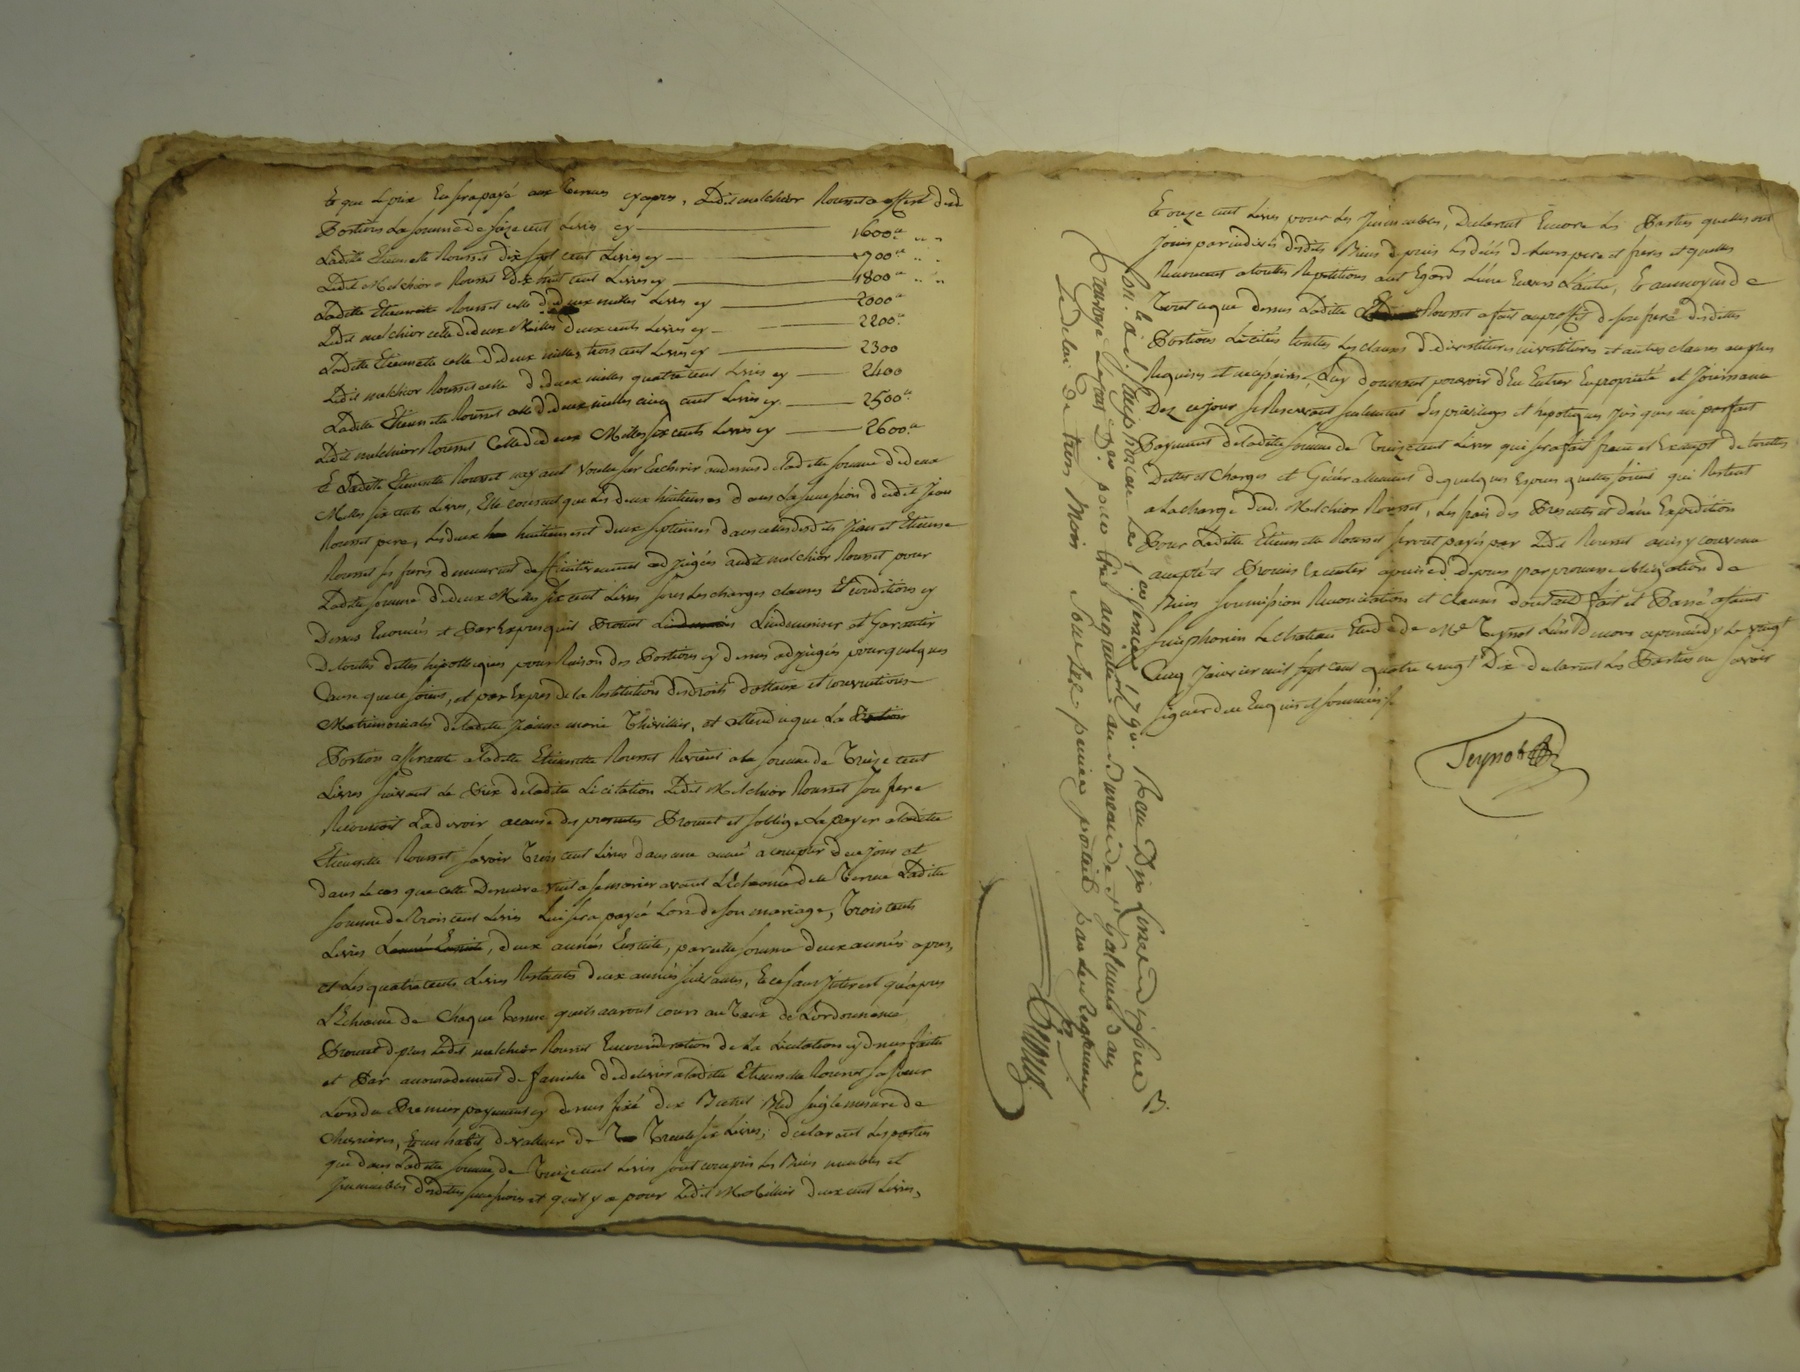 et que le prix en sera payé aux termes cy apres, Ledit melchior Rousset a offert desd
Portions La somme de seize cent Livres cy 1600ᵗᵗ
Laditte Etiennette Rousset dix sept cent Livres cy 1700ᵗᵗ
Ledit Melchior Rousset Dix huit cent Livres cy 1800ᵗᵗ
Ladite Etiennette Rousset celle de deux milles Livres cy 2000ᵗᵗ
Ledit melchior celle de deux Milles deux cents Livres cy 2200ᵗᵗ
Ladite Etiennette celle de deux milles trois cent Livres cy 2300
Ledit melchior Rousset celle de deux milles quatre cent Livres cy 2400
Ladite Etiennette Rousset celle de deux milles cinq cent Livres cy 2500ᵗᵗ
Ledit melchior Rousset Celle de deux Milles six cents Livres cy 2600ᵗᵗ
Et Ladite Etiennette Rousset nayant voulu sur Encherir audessus de ladite somme de deux
Milles six cents Livres, Elle consent que Les deux huitiemes dans La succession dudit Jean
Rousset pere, Lesdeux huitiemes et deux septiemes dans celles desdits Jean et Etienne
Rousset ses freres demeurent deffinitivement adjugés audit melchior Rousset pour
Ladite somme de deux Milles six cent Livres sous Les charges clauses Et conditions cy
Dessus Enoncées et Par Exprès quil Promet Lindemniser et Garantir
De toutes dettes hipotheques pour Raison des Portions cy dessus adjugés pour quelques
Cause que ce soient, et par Exprès de la Restitution des droits dottaux et conventions
Matrimoniales de ladite Jeanne marie Thévillier, et attendu que La
Portion afferante a ladite Etiennette Rousset Revient a la somme de Treize cent
Livres suivant Le Prix de ladite Licitation Ledit Melchior Rousset son frere
Reconnoit La devoir acause des presentes Promet et soblige de payer a ladite
Etiennette Rousset, savoir Trois cent Livres dans une année a compter de ce jour et
dans le cas que cette Derniere vint a se marier avant L'Echeance de ce Terme Ladite
somme de Trois cent Livres Lui sera payée Lors de son mariage, Trois cents
Livres, deux années Ensuite, pareille somme deux années apres,
et Les quatre cents Livres Restantes deux années suivantes, Et ce sans Interest qu'apres
L'Echeance de Chaque Terme quils auront cours au Taux de Lordonnance
Promet de plus Ledit melchior Rousset En consideration de La Licitation cy dessus faite
et Par accomodement de famille de delivrer a ladite Etiennette Rousset sa sœur
Lors du Premier payement cy dessus fixé dix Bichets Bled seigle mesure de
Chevrières, Et un habit de valleur de Trente six Livres; declarant Les parties
que dans Ladite somme de Treize cent Livres sont compris Les Biens meubles et
Immeubles desdittes successions et quil y a pour Ledit Mobilier deux cent Livres,
Et onze cent Livres pour Les Immeubles, Declarent Encore Les Parties quelles ont
Jouis par indivis desdits Biens depuis Le décès de Leurs pere et freres et quelles
Renoncent a toutes Repetitions aud Egard L'une Envers L'autre, Et au moyen de
Tout ce que dessus Ladite Rousset a fait au proffit de son frere desdittes
Portions Licitées toutes Les clauses de devestitures investitures et autres clauses au plus
Requises et necessaires, Luy donnant pouvoir d'En Entrer En proprieté et Jouissance
Dez ce jour se Reservant seulement Les privileges et hypoteques jusques au parfait
Payement de ladite somme de Treize cent Livres qui sera fait franc et Exempt de toutes
Dettes et Charges et Généralement de quelques Especes quelles soient qui Restent
a La charge dud Melchior Rousset, Les frais des Presentes et d'une Expédition
Pour Ladite Etiennette Rousset seront payés par Ledit Rousset ainsy convenu
accepté et Promis Executer a peine de depens par promesse obligation de
Biens soumission Renonciations et clauses dont acte fait et Passé a saint
simphorien Le chateau Etude de Mᵉ Teynot L'un de nous apres midy Le vingt
Cinq Janvier mil sept cent quatre vingt Dix declarent Les Parties ne savoir
signer de ce Enquises et sommées
Teynot
Con. à St. Simphorien Le 1790. Recu Dix
pour être au Bureau de St Galmier dans
Le delai de trois Mois sous Les peines portées par les Reglemens